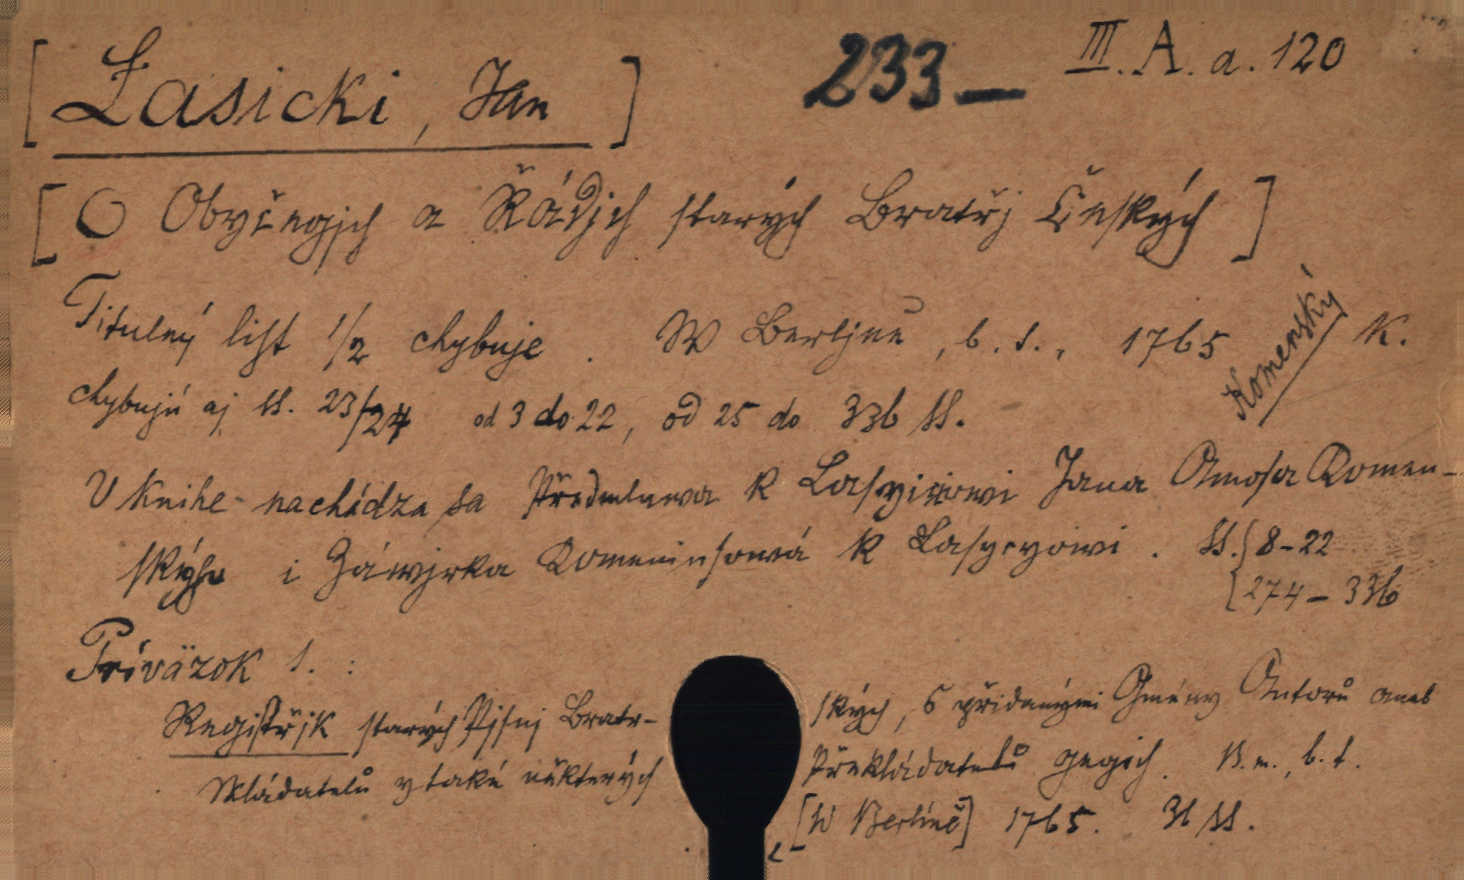 [Łasicki, Jan]
233—
III. A. a. 120
[O Obyčegjch a Řádjch starých Bratřj Českých]
Titulný list 1/2 chybuje. W Berljně, b. t., 1765
Komenský
K.
chybujú aj ss. 23/24 od 3 do 22, od 25 do 336 ss.
V knihe nachádza sa Předmluwa k Lasyciowi Jana Amosa Komen-
ského i Záwjrka Komeniusowá k Lasycyowi. ss. { 8-22
[274-336
Príväzok 1. :
Registřjk starých Pjsnj Bratr-
ských, S přidanými Gmény Autorů aneb
Skládatelů y také některých
Překládatelů gegich. B. m., b. t.
[W Berlíně] 1765. 36 ss.